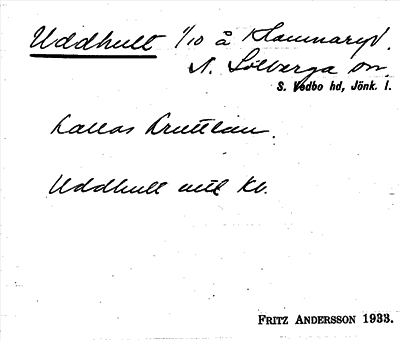 Uddhult 1/10 å Hammaryd.
N. Solberga sn.
S. Vedbo hd, Jönk. l.
Kallas
Uddhult
FRITZ ANDERSSON 1933.